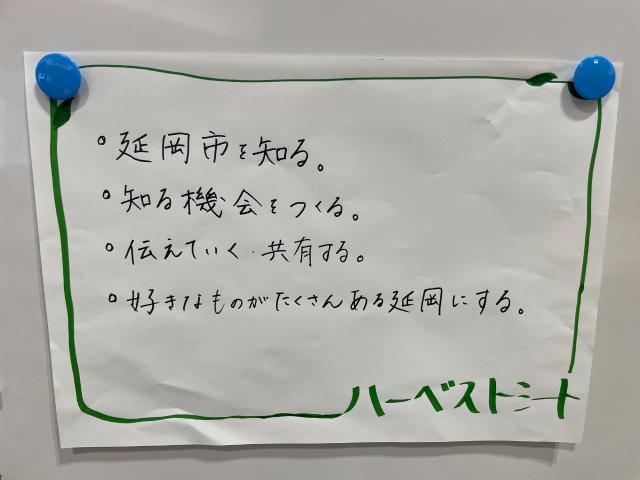 。延岡市を知る。
。知る機会をつくる。
。伝えていく・共有する。
。好きなものがたくさんある延岡にする。
ハーベストシート